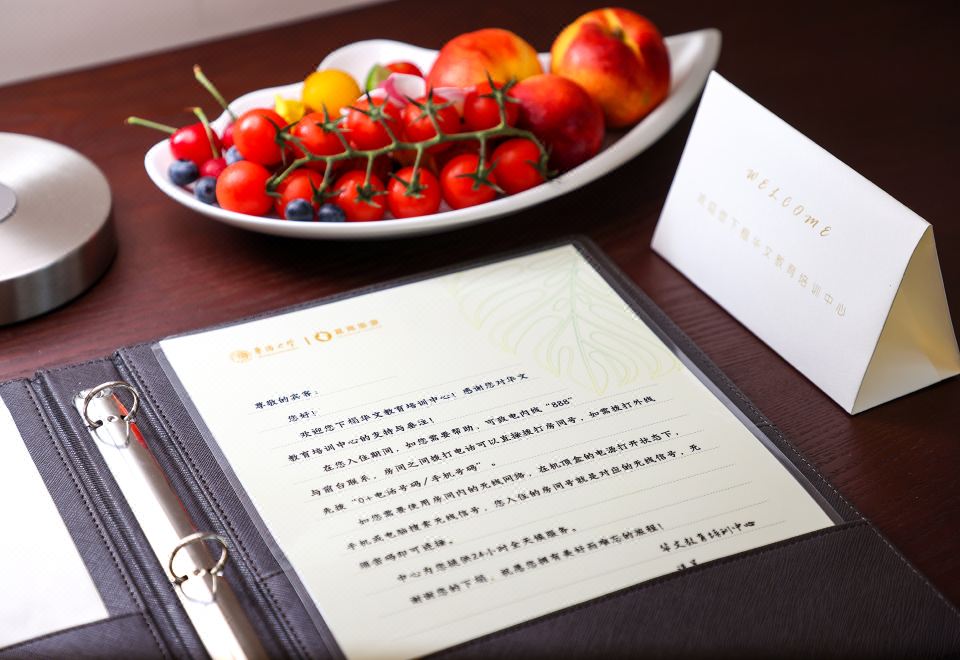 華僑大學
尊敬的宾客：
您好！
欢迎您下榻华文教育培训中心！感谢您对华文
教育培训中心的支持与眷注！
在您入住期间，如您需要帮助，可致电内线“888”
与前台联系，房间之间拨打电话可以直接拨打房间号，如需拨打外线
先拨“0+电话号码/手机号码”。
如您需要使用房间内的无线网络，在机顶盒的电源打开状态下，
手机或电脑搜索无线信号，您入住的房间号就是对应的无线信号，无
须密码即可连接。
中心为您提供24小时全天候服务。
谢谢您的下榻，祝愿您拥有美好而难忘的旅程！
华文教育培训中心
WELCOME
下榻华文教育培训中心